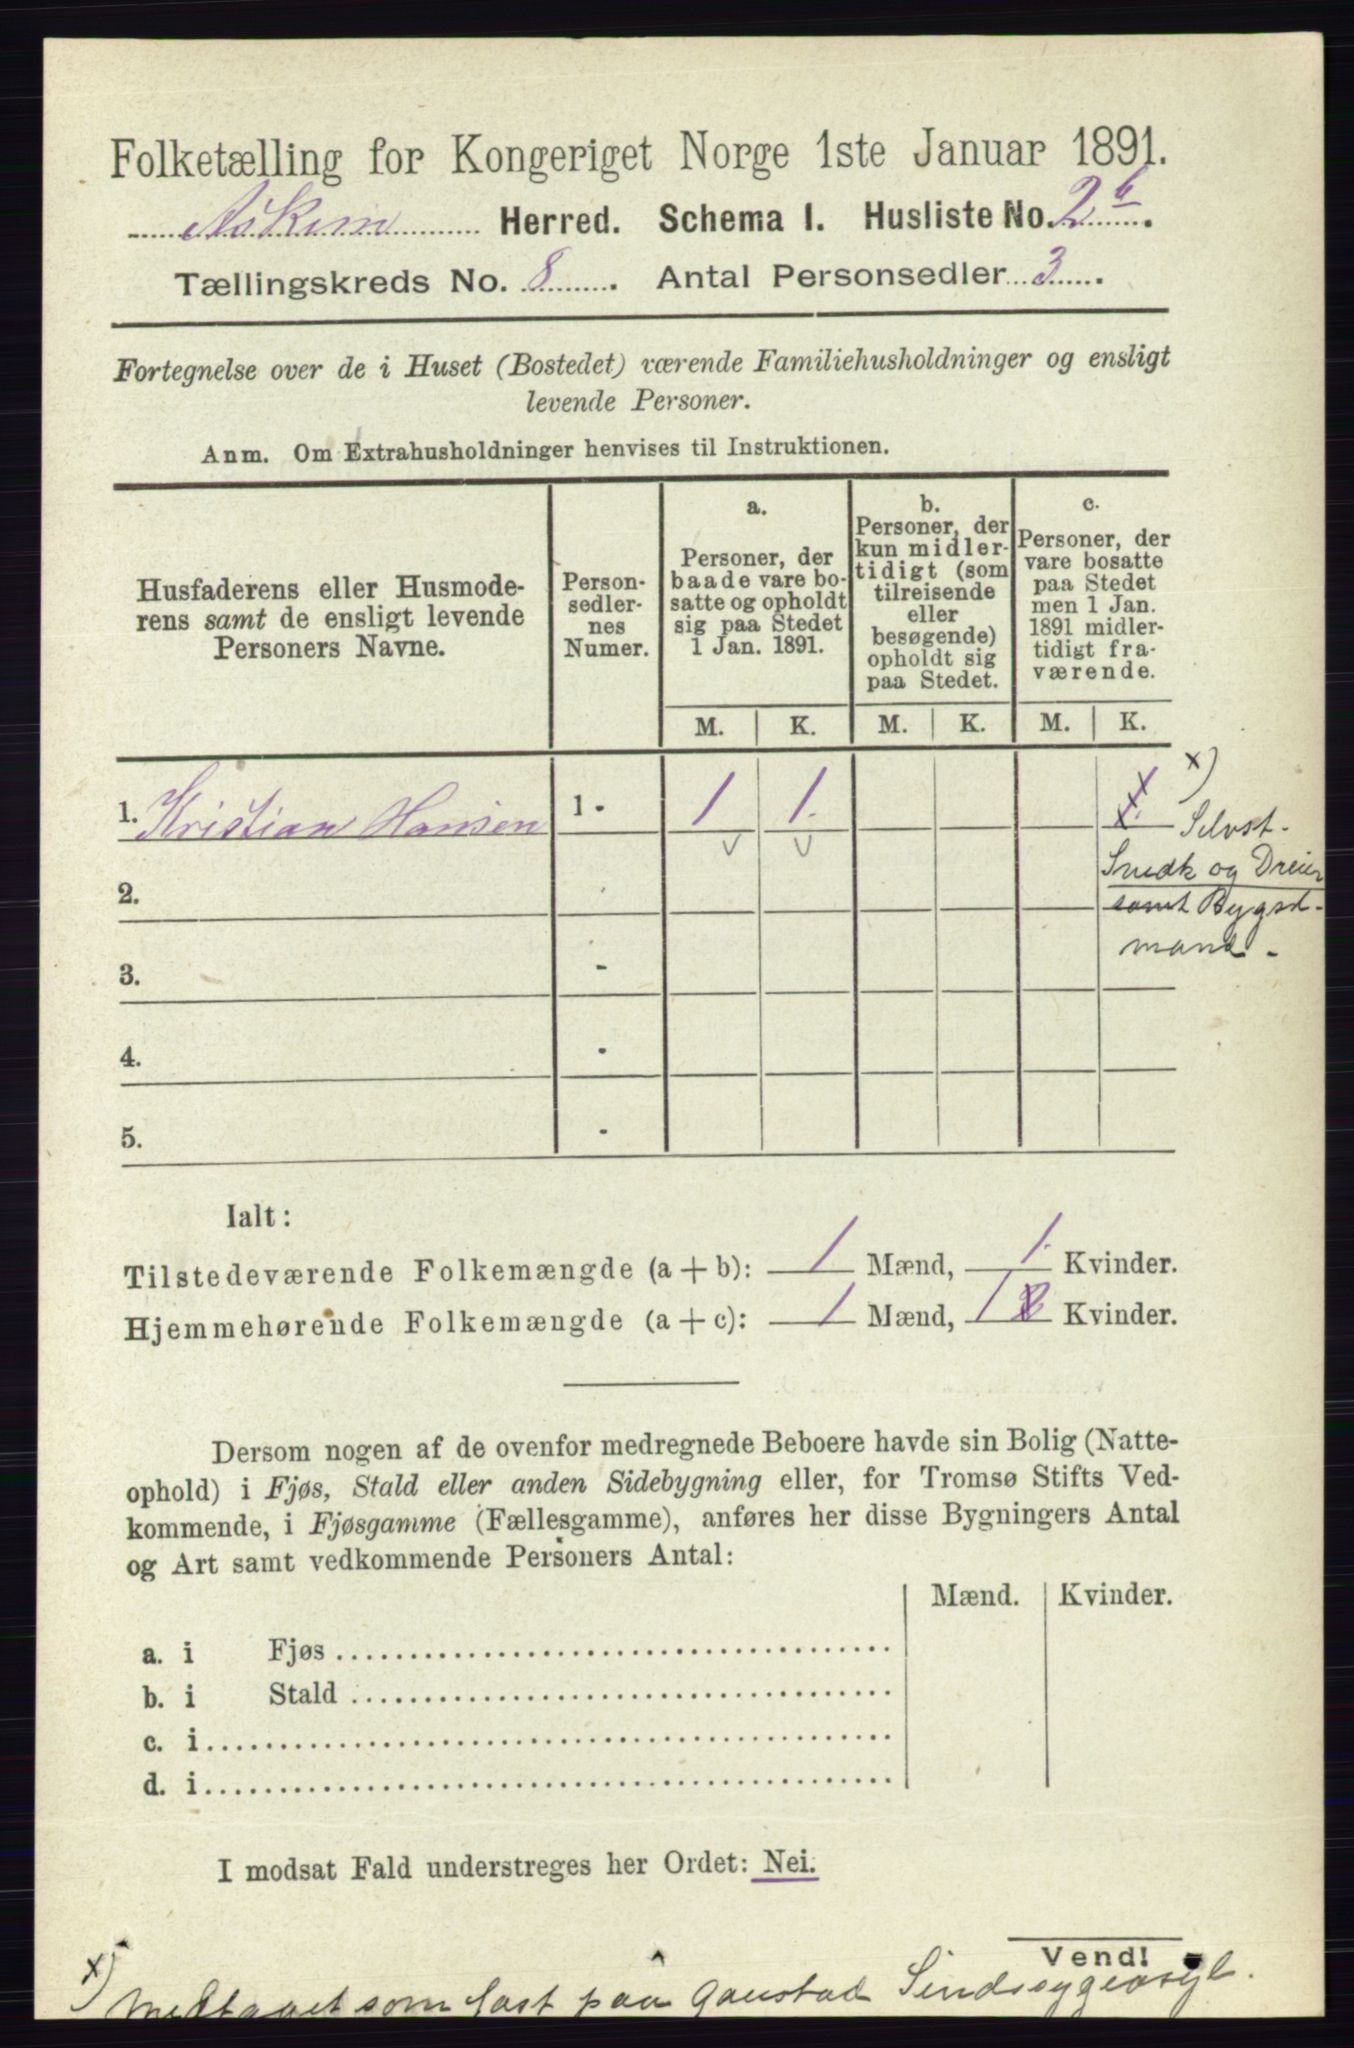 Folketælling for Kongeriget Norge 1ste Januar 1891.
Askim Herred. Schema I. Husliste No. 2b.
Tællingskreds No. 8. Antal Personsedler 3.
Fortegnelse over de i Huset (Bostedet) værende Familiehusholdninger og ensligt
levende Personer.
Anm. Om Extrahusholdninger henvises til Instruktionen.
Husfaderens eller Husmode-
rens samt de ensligt levende
Personers Navne.
Person-
sedler-
nes
Numer.
a.
Personer, der
baade vare bo-
satte og opholdt
sig paa Stedet
1 Jan. 1891.
b.
Personer, der
kun midler-
tidigt (som
tilreisende
eller
besøgende)
opholdt sig
paa Stedet.
c.
Personer, der
vare bosatte
paa Stedet
men 1 Jan.
1891 midler-
tidigt fra-
værende.
M. K. M. K. M. K.
1. Kristian Hansen 1 - 1 1. 1. x)
Selvst.
Snedk og Dreier
samt Bygsel-
mand -
2.
3. -
4. -
5. -
Ialt:
Tilstedeværende Folkemængde (a + b): 1 Mænd, 1. Kvinder.
Hjemmehørende Folkemængde (a + c): 1 Mænd, 1 2 Kvinder.
Dersom nogen af de ovenfor medregnede Beboere havde sin Bolig (Natte-
ophold) i Fjøs, Stald eller anden Sidebygning eller, for Tromsø Stifts Ved-
kommende, i Fjøsgamme (Fællesgamme), anføres her disse Bygningers Antal
og Art samt vedkommende Personers Antal:
Mænd. Kvinder.
a. i Fjøs
b. i Stald
c. i
d. i
I modsat Fald understreges her Ordet: Nei.
Vend!
x) Medtaget som fast paa Gaustad Sindssygeasyl.